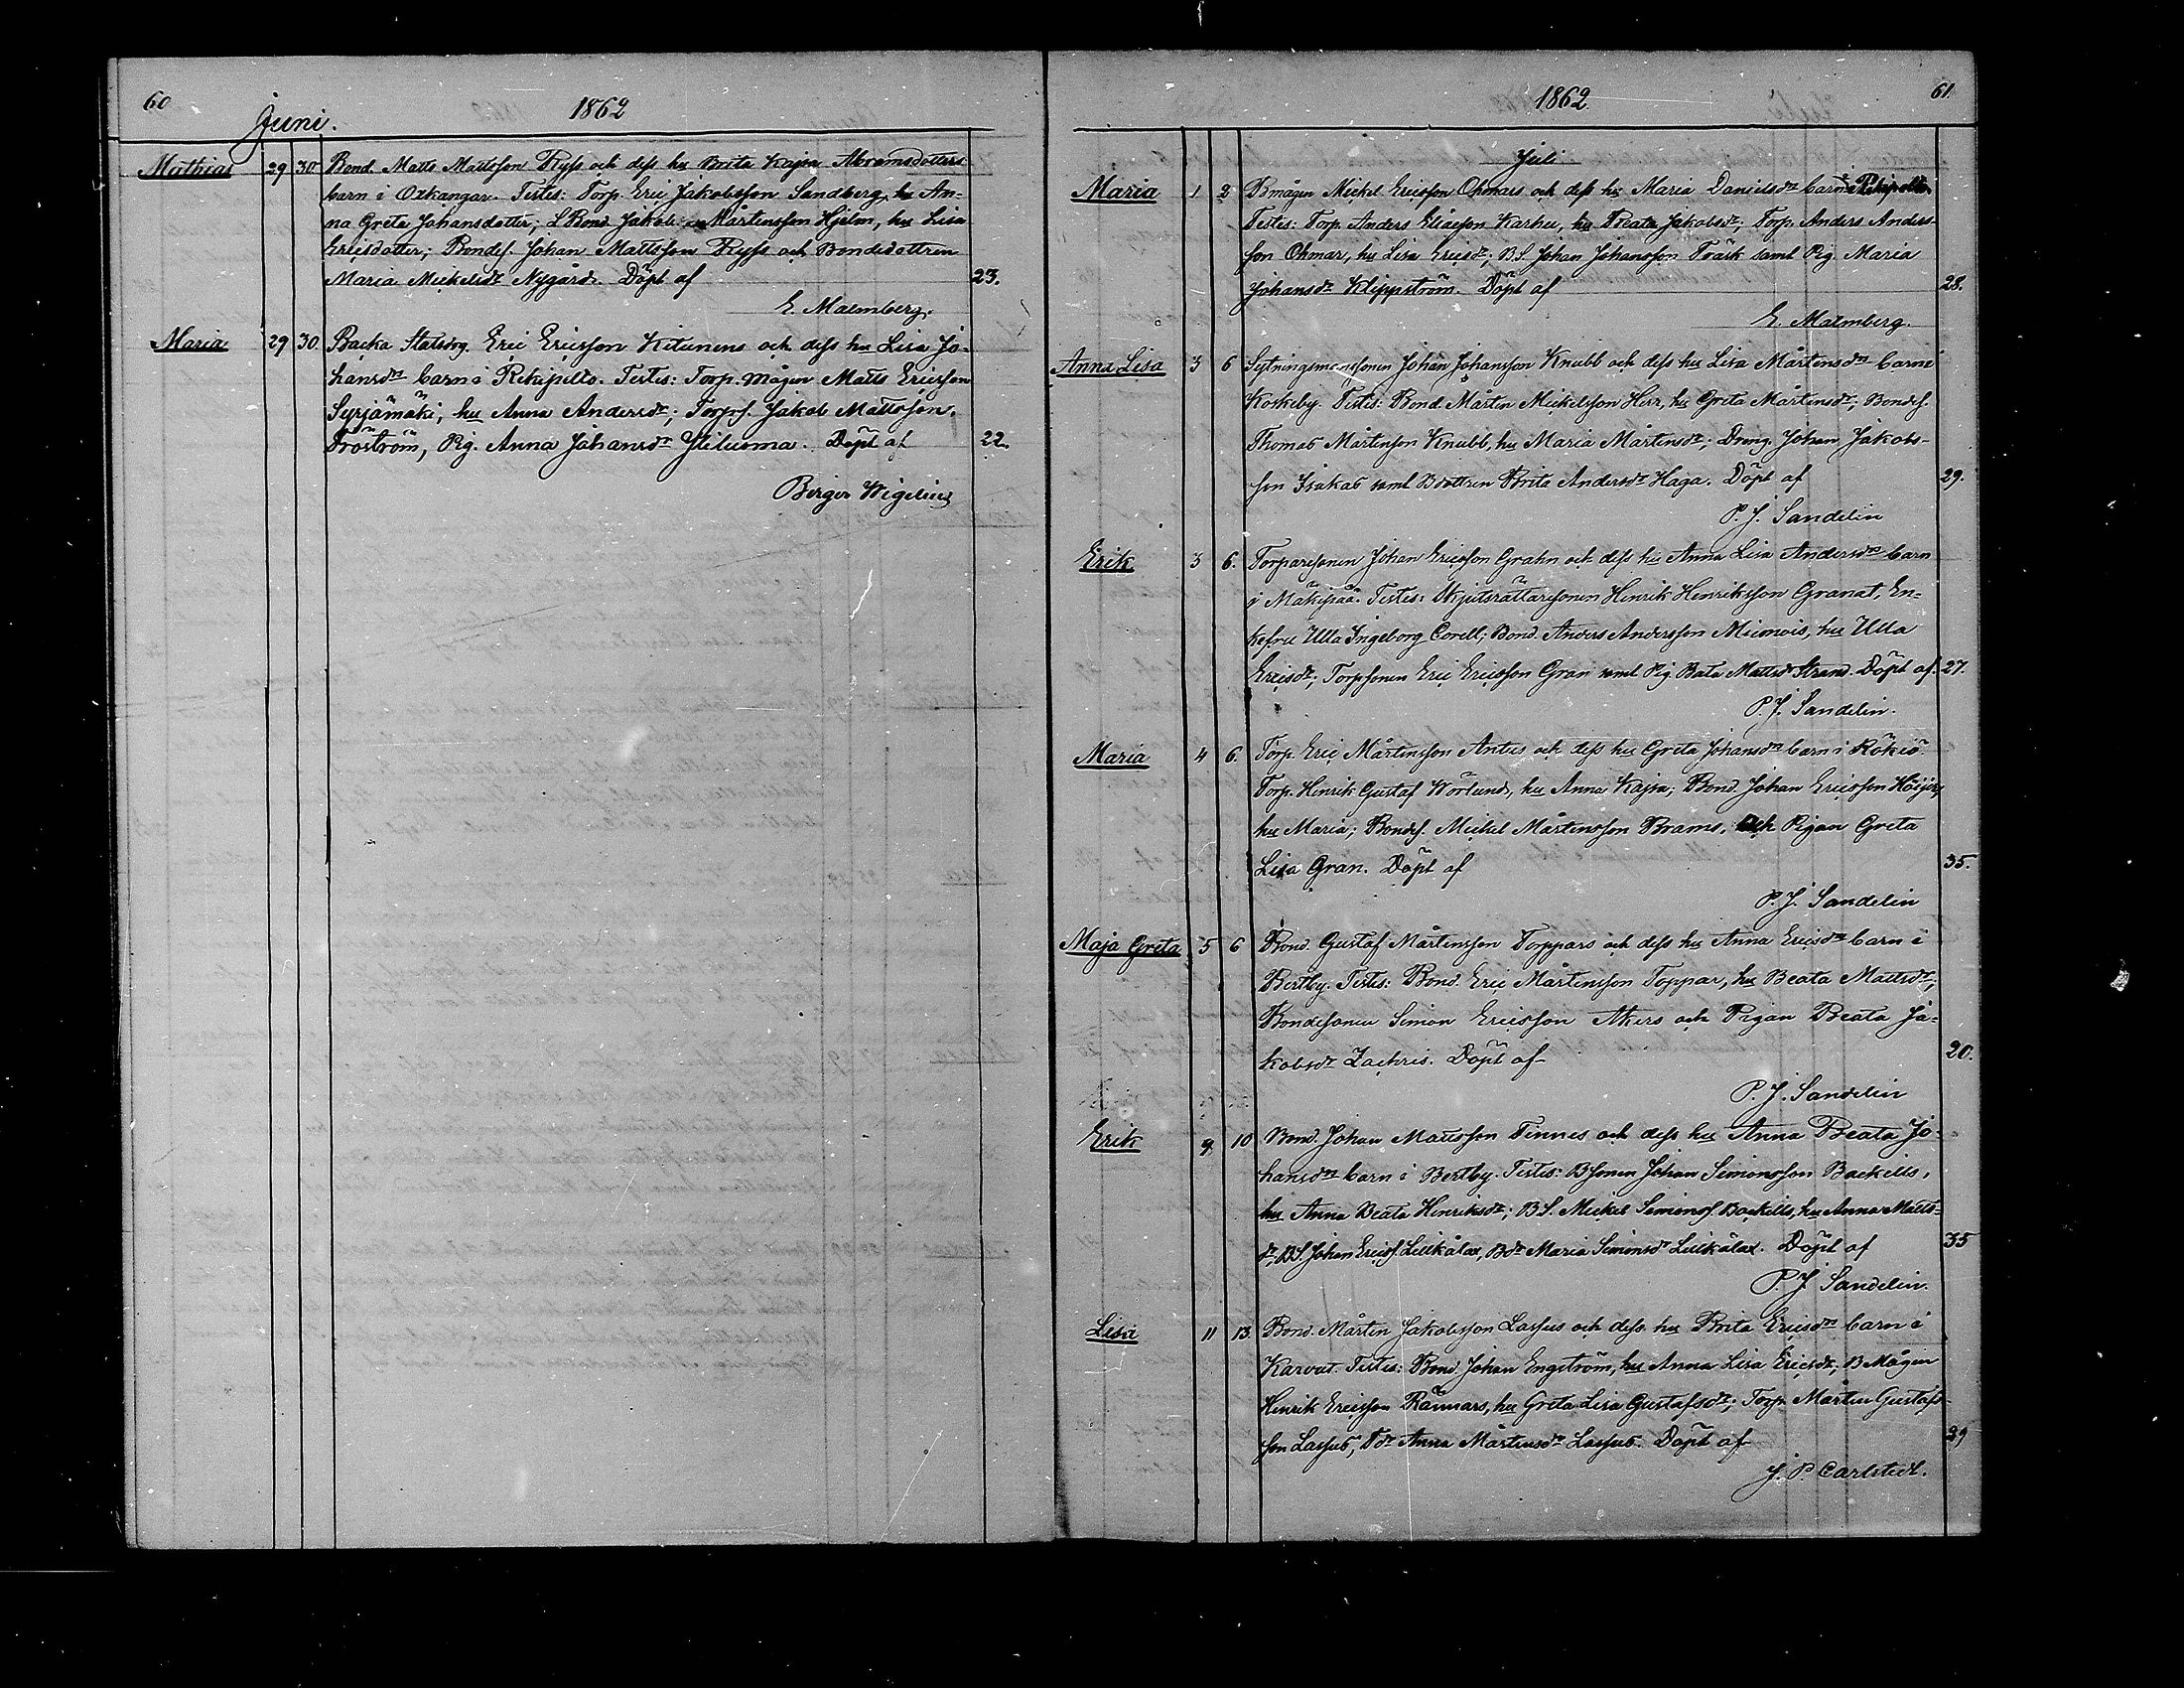 60
Juni.
1862
Mathias 29 30 Bond. Matts Mattsson Ryss och dess hu Brita Kajsa Abramsdotters
barn i Oxkangar. Testes: Torp. Eric Jakobsson Sandberg, hu An-
na Greta Johansdotter; LBond Jakob Mårtensson Hjelm, hu Lisa
Ericsdotter; Bondes. Johan Mattsson Ryss och Bondedottren
Maria Mickelsdr Nygård. Döpt af 23.
E. Malmberg.
Maria 29 30. Backa Statsdrg. Eric Ericsson Kitunens och dess hu Lisa Jo-
hansdrs barn i Rekipelto. Testes: Torp. mågen Matts Ericsson
Syrjämäki, hu Anna Andersdr; Torps. Jakob Mattsson
Froström, Pig. Anna Johansdr Ylilusma. Döpt af 22.
Birger Wigelius
1862
61.
Juli
Maria 1 2 Bmågen Mickel Ericsson Ohmars och dess hu Maria Danielsdrs barn i Rekipelto.
Testes: Torp. Anders Eliasson Karhu, hu Beata Jakobsdr; Torp. Anders Anders-
son Ohmar, hu Lisa Ericsdr; B.S. Johan Johansson Träsk samt Pig. Maria
Johansdr Klippström. Döpt af 28.
E. Malmberg.
Anna Lisa 3 6 Sytningsmanssonen Johan Johansson Knubb och dess hu Lisa Mårtensdrs barn i
Koskeby. Testes: Bond. Mårten Mickelsson Herr, hu Greta Mårtensdr; Bondes.
Thomas Mårtenson Knubb, hu Maria Mårtensdr; Dreng. Johan Jakobs-
son Isakas samt Bdottren Brita Andersdr Haga. Döpt af 29.
P. J. Sandelin
Erik 3 6. Torparesonen Johan Ericsson Grahn och dess hu Anna Lisa Andersdrs barn
i Mäkipää. Testes: Skjutsrättaresonen Henrik Henriksson Granat, En-
kefru Ulla Ingeborg Corell; Bond. Anders Andersson Miemois, hu Ulla
Ericsdr; Torpsonen Eric Ericsson Gran samt Pig Bata Mattsdr Strand. Döpt af. 27.
P. J. Sandelin.
Maria 4 6. Torp. Eric Mårtensson Antus och dess hu Greta Johansdrs barn i Rökiö.
Torp. Henrik Gustaf Wörlund, hu Anna Kajsa; Bond. Johan Ericsson Höijer,
hu Maria; Bondes. Mickel Mårtensson Brams, och Pigan Greta
Lisa Gran. Döpt af 35.
P. J. Sandelin
Maja Greta 5 6 Bond. Gustaf Mårtensson Toppars och dess hu Anna Ericsdrs barn i
Bertby. Testes: Bond. Eric Mårtensson Toppar, hu Beata Mattsdr;
Bondesonen Simon Ericsson Akers och Pigan Beata Ja-
kobsdr Zachris. Döpt af 20.
P. J. Sandelin
Erik 9 10 Bond. Johan Mattsson Tinnes och dess hu Anna Beata Jo-
hansdrs barn i Bertby. Testes: Bsonen Johan Simonsson Backills,
hu Anna Beata Henriksdr; B.S. Mickel Simons. Backills, hu Anna Matts-
dr, BS Johan Erics. Lillkålax, Bdr Maria Simonsdr Lillkålax. Döpt af 35
P. J. Sandelin.
Lisa 11 13. Bond. Mårten Jakobsson Lassus och dess hu Brita Ericsdrs barn i
Karvat. Testes: Bond. Johan Engström, hu Anna Lisa Ericsdr; B Mågen
Henrik Ericsson Rännars, hu Greta Lisa Gustafsdr; Torp. Mårten Gustafs-
son Lassus, Tdr Anna Mårtensdr Lassus. Döpt af 29
J. P. Carlstedt.